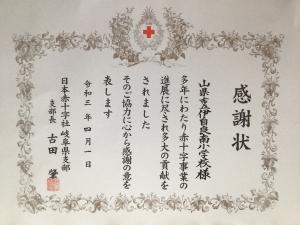 感謝状
山県市立伊自良南小学校様
多年にわたり赤十字事業の
進展に尽され多大の貢献を
されました
そのご協力に心から感謝の意を
表します
令和三年四月一日
日本赤十字社岐阜県支部
支部長 古田 肇